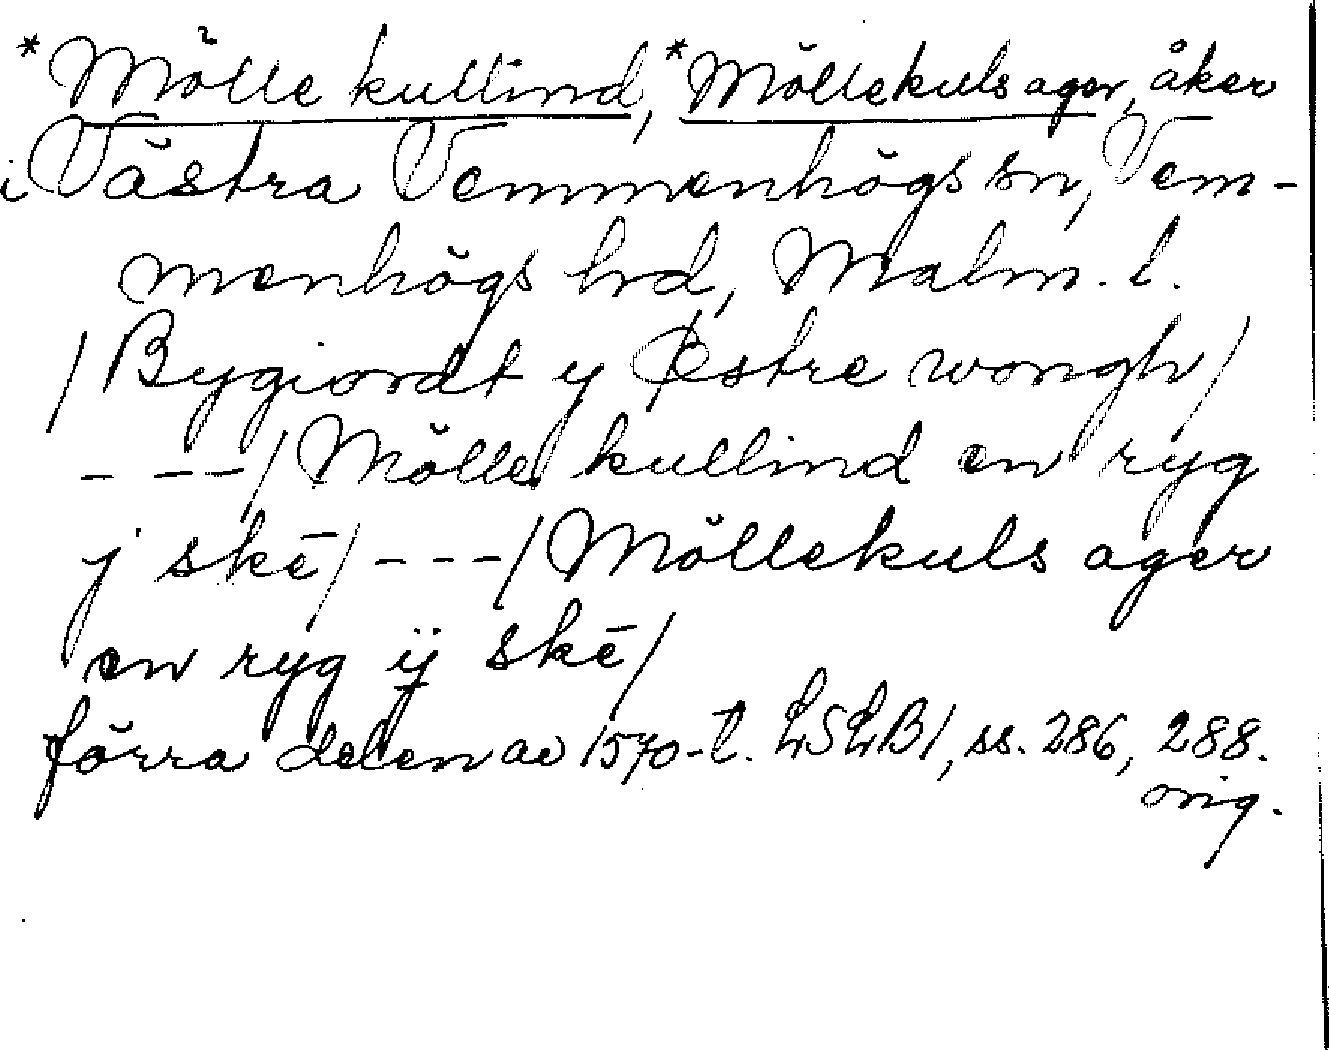 *Mölle kullind, *Möllekuls ager, åker
i Västra Vemmenhögs sn, Vem-
menhögs hd, Malm. l.
/Bygiordt y Østre wongh/
- - - / Mölle kullind en ryg
j skē/ - - - / Möllekuls ager
en ryg ÿ skē/
förra delen av 1570-t. LSLB1, ss. 286, 288.
orig.